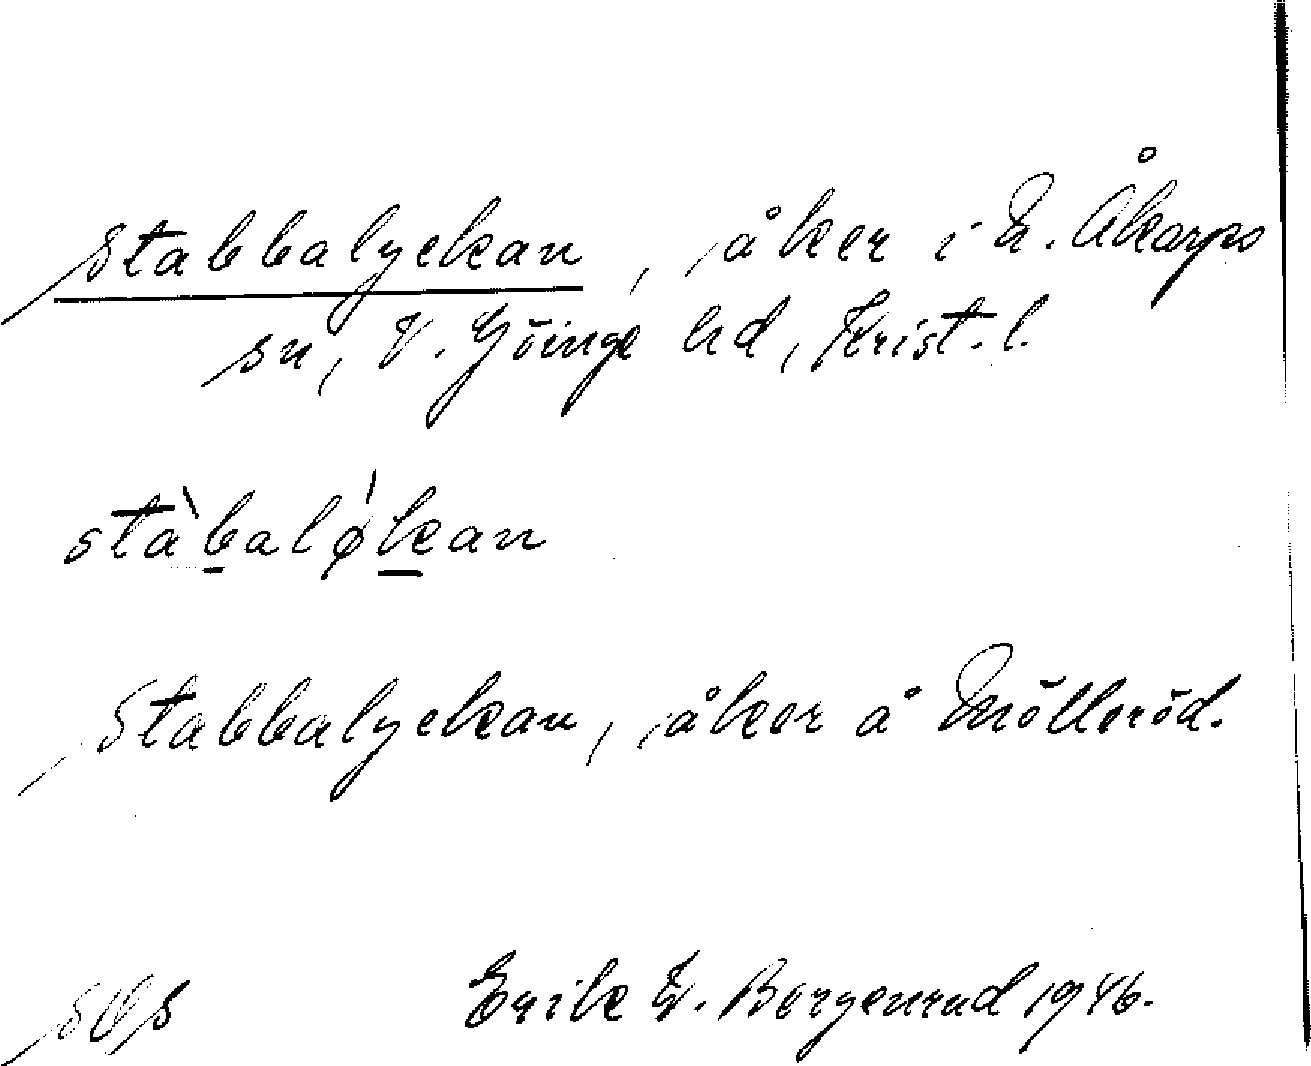 Stabbalyckan, åker i N. Åkarps
sn, V. Göinge hd, Krist. l.
stàbalǿkan
Stabbalyckan, åker å Mölleröd.
SOS Erik W. Bergenrud 1946.